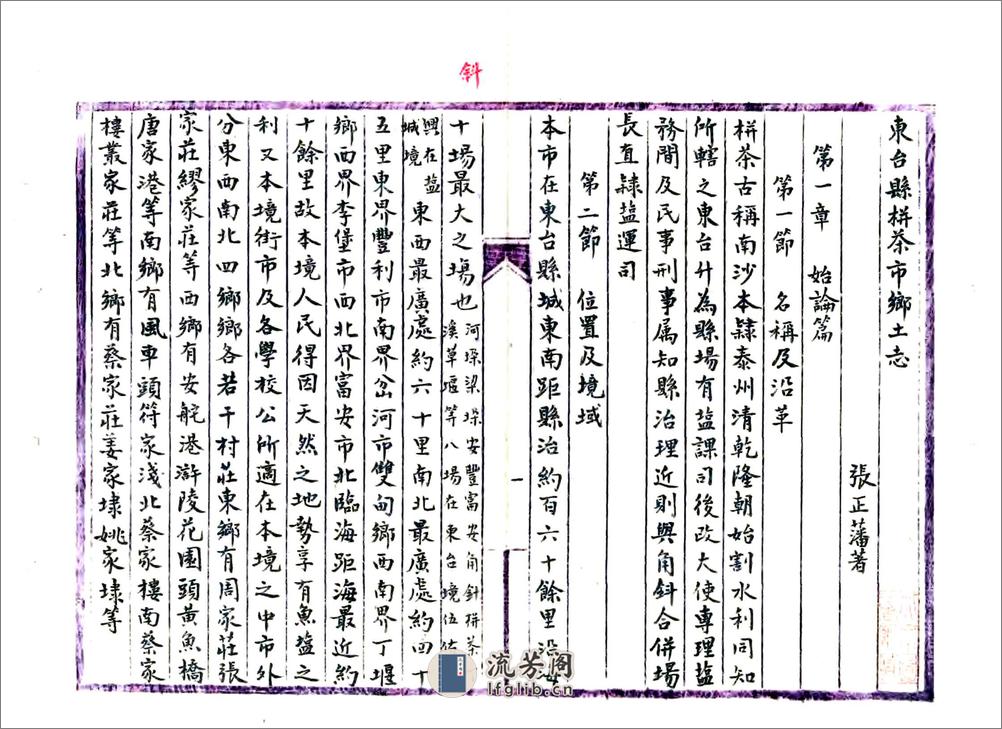 斜
東台縣栟茶市鄉土志
張正藩著
第一章 始論篇
第一節 名稱及沿革
栟茶古稱南沙本隷泰州清乾隆朝始割水利同知
所轄之東台升為縣場有盐課司後改大使專理盐
務間及民事刑事属知縣治理近則與角斜合併場
長直隷盐運司
第二節 位置及境域
本市在東台縣城東南距縣治約百六十餘里沿海
一
十場最大之場也
河垛梁垛安豐富安角斜栟茶
溱草堰等八場在東台境伍佑
興在盐
城境
東西最廣處約六十里南北最廣處約四十
五里東界豐利市南界岔河市雙甸鄉西南界丁堰
鄉西界李堡市西北界富安市北臨海距海最近約
十餘里故本境人民得因天然之地勢享有魚盐之
利又本境街市及各學校公所適在本境之中市外
分東西南北四鄉鄉各若干村莊東鄉有周家莊張
家莊繆家莊等西鄉有安舵港滸陵花園頭黃魚橋
唐家港等南鄉有風車頭符家淺北蔡家樓南蔡家
樓叢家莊等北鄉有蔡家莊姜家埭姚家埭等
流芳阁
lfglib.cn